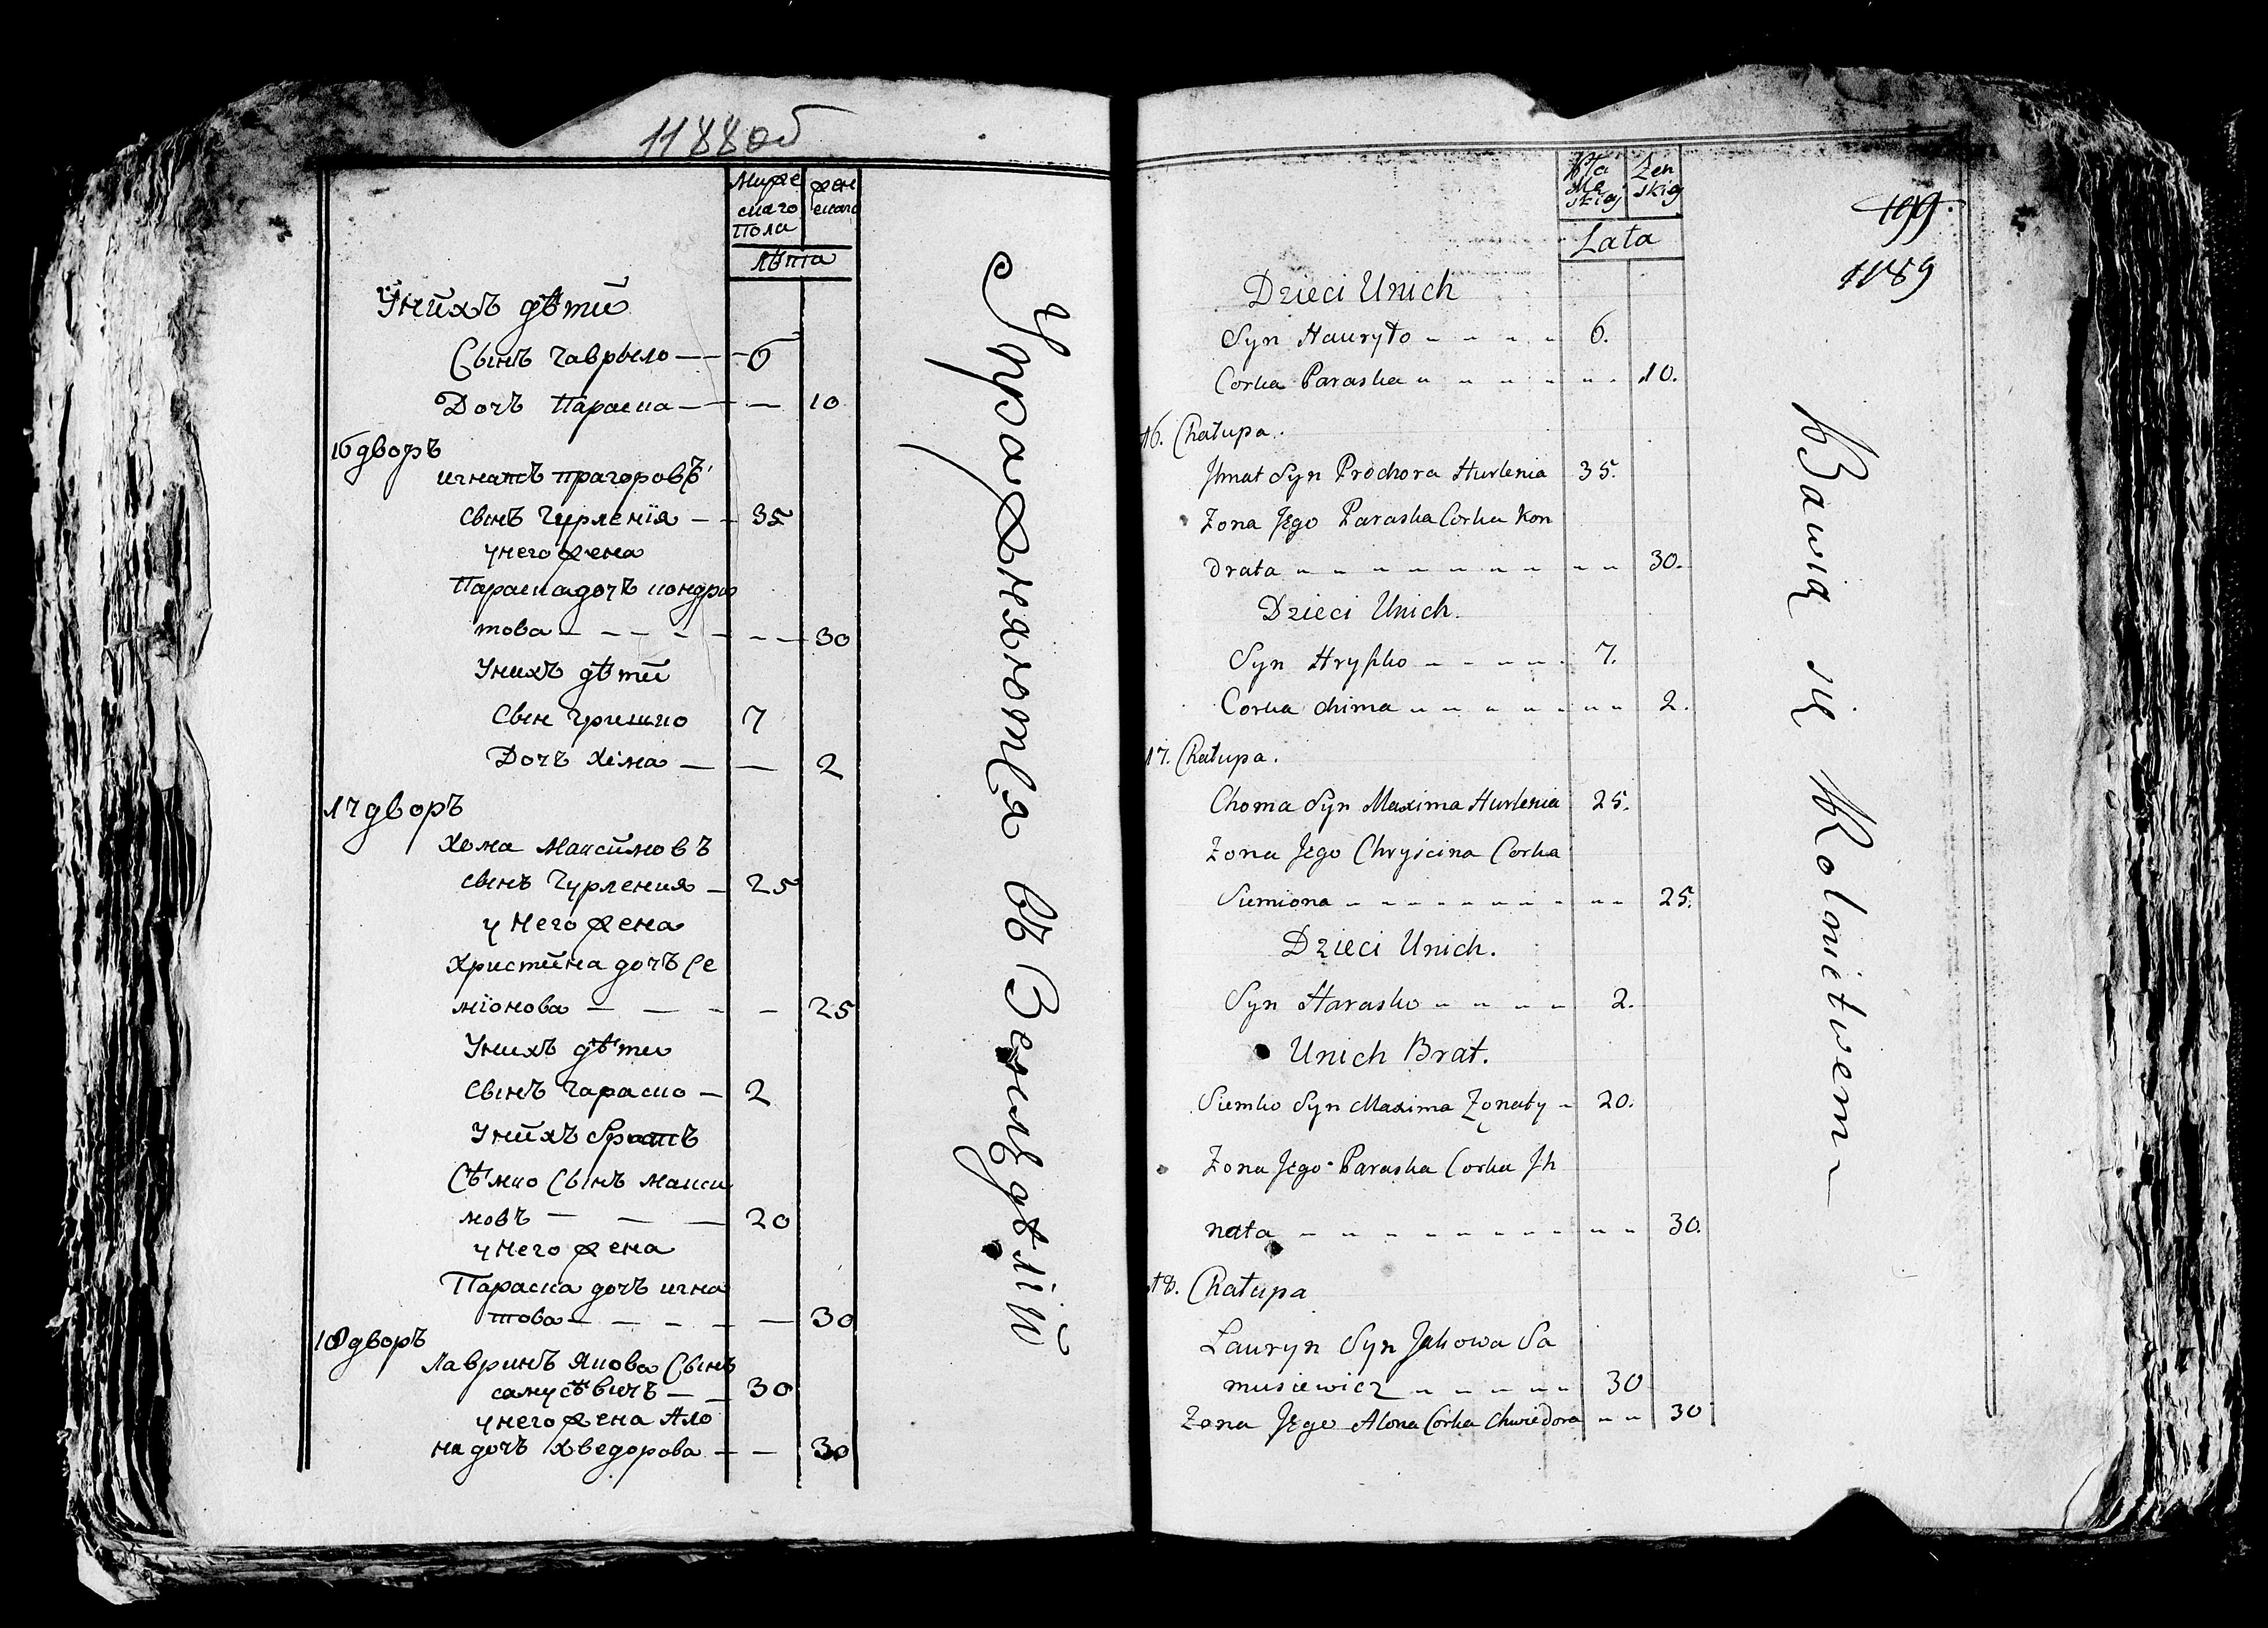 1188об
Муже
скаго
Пола
жен
скаго
лѣта
Унихъ дѣти
Сынъ Гаврыло — — — 6
Дочъ Параска — — — 10
16 дворъ
игнатъ прагоровъ
сынъ Гурленія — — 35
унего жена
Параска дочъ кондра
това — — — — — — — 30
Унихъ дѣти
Сын Гришко 7
Дочъ Хіма — — 2
17 дворъ
Хома Максимовъ
сынъ Гурления — 25
у него жена
Христина дочъ Се
міонова — — — — 25
Унихъ дѣти
Сынъ Гараско — 2
Унихъ братъ
Сѣмко Сынъ Макси
мовъ — — — 20
у него жена
Параска дочъ игна
това — — — — — 30
18 дворъ
Лавринъ Якова Сынъ
самусѣвичъ — — 30
унего жена Ало
на дочъ Хведорова — — 30
Упражняются въ Земледѣлій
Mę
skiey
Żen
skiey
Lata
199.
1189
Dzieci Unich
Syn Hauryło - - - - 6.
Corka Paraska - - - - - - 10.
16. Chałupa.
Jhnat Syn Prochora Hurlenia 35.
Zona Jego Paraska Corka Kon
drata - - - - - - - - - - 30.
Dzieci Unich.
Syn Hryszko - - - - - 7.
Corka Chima - - - - - - - - 2.
17. Chałupa.
Choma Syn Maxima Hurlenia 25.
Zona Jego Chryścina Corka
Siemiona - - - - - - - - - - 25.
Dzieci Unich.
Syn Harasko - - - - 2.
Unich Brat.
Siemko Syn Maxima Zonaty - 20.
Zona Jego Paraska Corka Jh
nata - - - - - - - - - - - 30.
18. Chałupa
Lauryn Syn Jakowa Sa
musiewicz - - - - - - 30
Zona Jego Alona Corka Chwiedora - - 30
Bawią się Rolnictwem